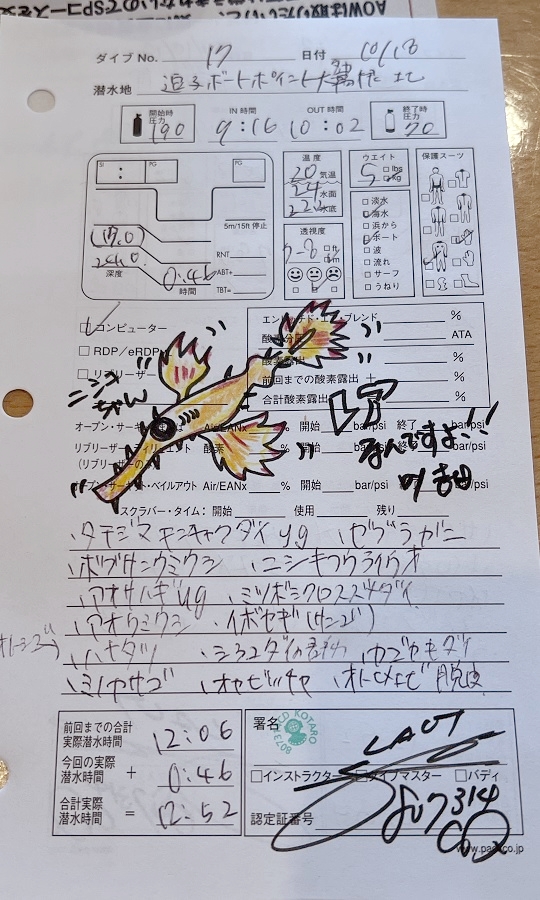 ダイブ No. 17 日付 10/18
潜水地 逗子ボートポイント大
開始時圧力 190 IN 時間 9:16 OUT 時間 10:02 終了時圧力 70
SI : PG PG
5m/15ft 停止
17.0
24.0
深度
0:46
時間
RNT=
ABT+
TBT=
温度
20 気温
24 水面
22.2 水底
透視度
7-8 ft m
ウエイト
5 lbs
kg
淡水
海水
浜から
ボート
波
流れ
サーフ
うねり
保護スーツ
コンピューター
RDP/eRDP
リブリーザー
エンリッチド・エア・ブレンド %
酸素分圧 ATA
酸素露出 %
前回までの酸素露出 + %
合計酸素露出 %
ニシキ
ちゃん
レア
なんですよ!!
オープン・サーキット Air/EANx % 開始 bar/psi 終了 bar/psi
リブリーザー・ディリュエント 酸素 % 開始 bar/psi 終了 bar/psi
(リブリーザーのみ)
オープン・サーキット・ベイルアウト Air/EANx % 開始 bar/psi 終了 bar/psi
スクラバー・タイム：開始 使用 残り
、タテジマキンチャクダイyg 、ゼブラガニ
、ボブサンウミウシ 、ニシキフウライウオ
、アオサハギyg 、ミツボシクロスズメダイ
、アオウミウシ 、イボヤギ(サンゴ)
、ハナタツ 、シラコダイの 、カゴカキダイ
、ミノカサゴ 、オヤビッチャ 、オトヒメエビ 脱皮
前回までの合計実際潜水時間 12:06
今回の実際潜水時間 + 0:46
合計実際潜水時間 = 12:52
署名
CD KOTARO
インストラクター ダイブマスター バディ
認定証番号
www.padi.co.jp